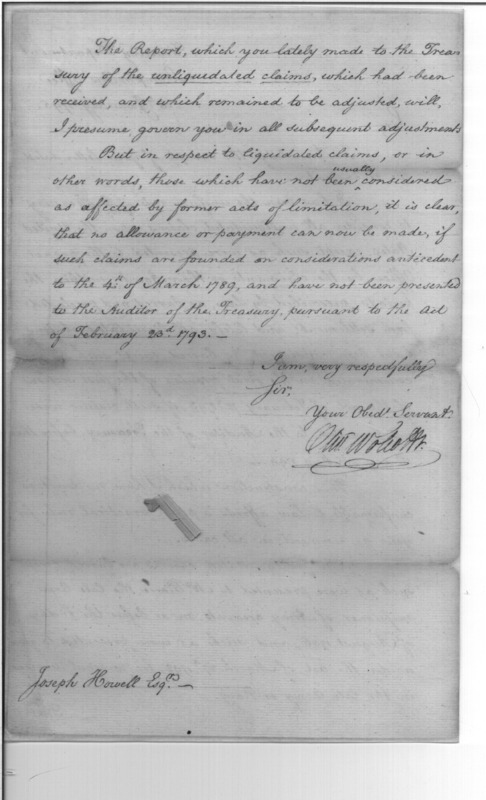 The Report, which you lately made to the Trea-
sury of the unliquidated claims, which had been
received, and which remained to be adjusted, will,
I presume govern you in all subsequent adjustments
But in respect to liquidated claims, or in
other words, those which have not been usually considered
as affected by former acts of limitation, it is clear,
that no allowance or payment can now be made, if
such claims are founded on considerations antecedent
to the 4th. of March 1789, and have not been presented
to the Auditor of the Treasury, pursuant to the Act
of February 23d. 1793.—
I am, very respectfully
Sir,
Your Obedt Servant.
Olivr Wolcott Jr.
Joseph Howell Esqr.—